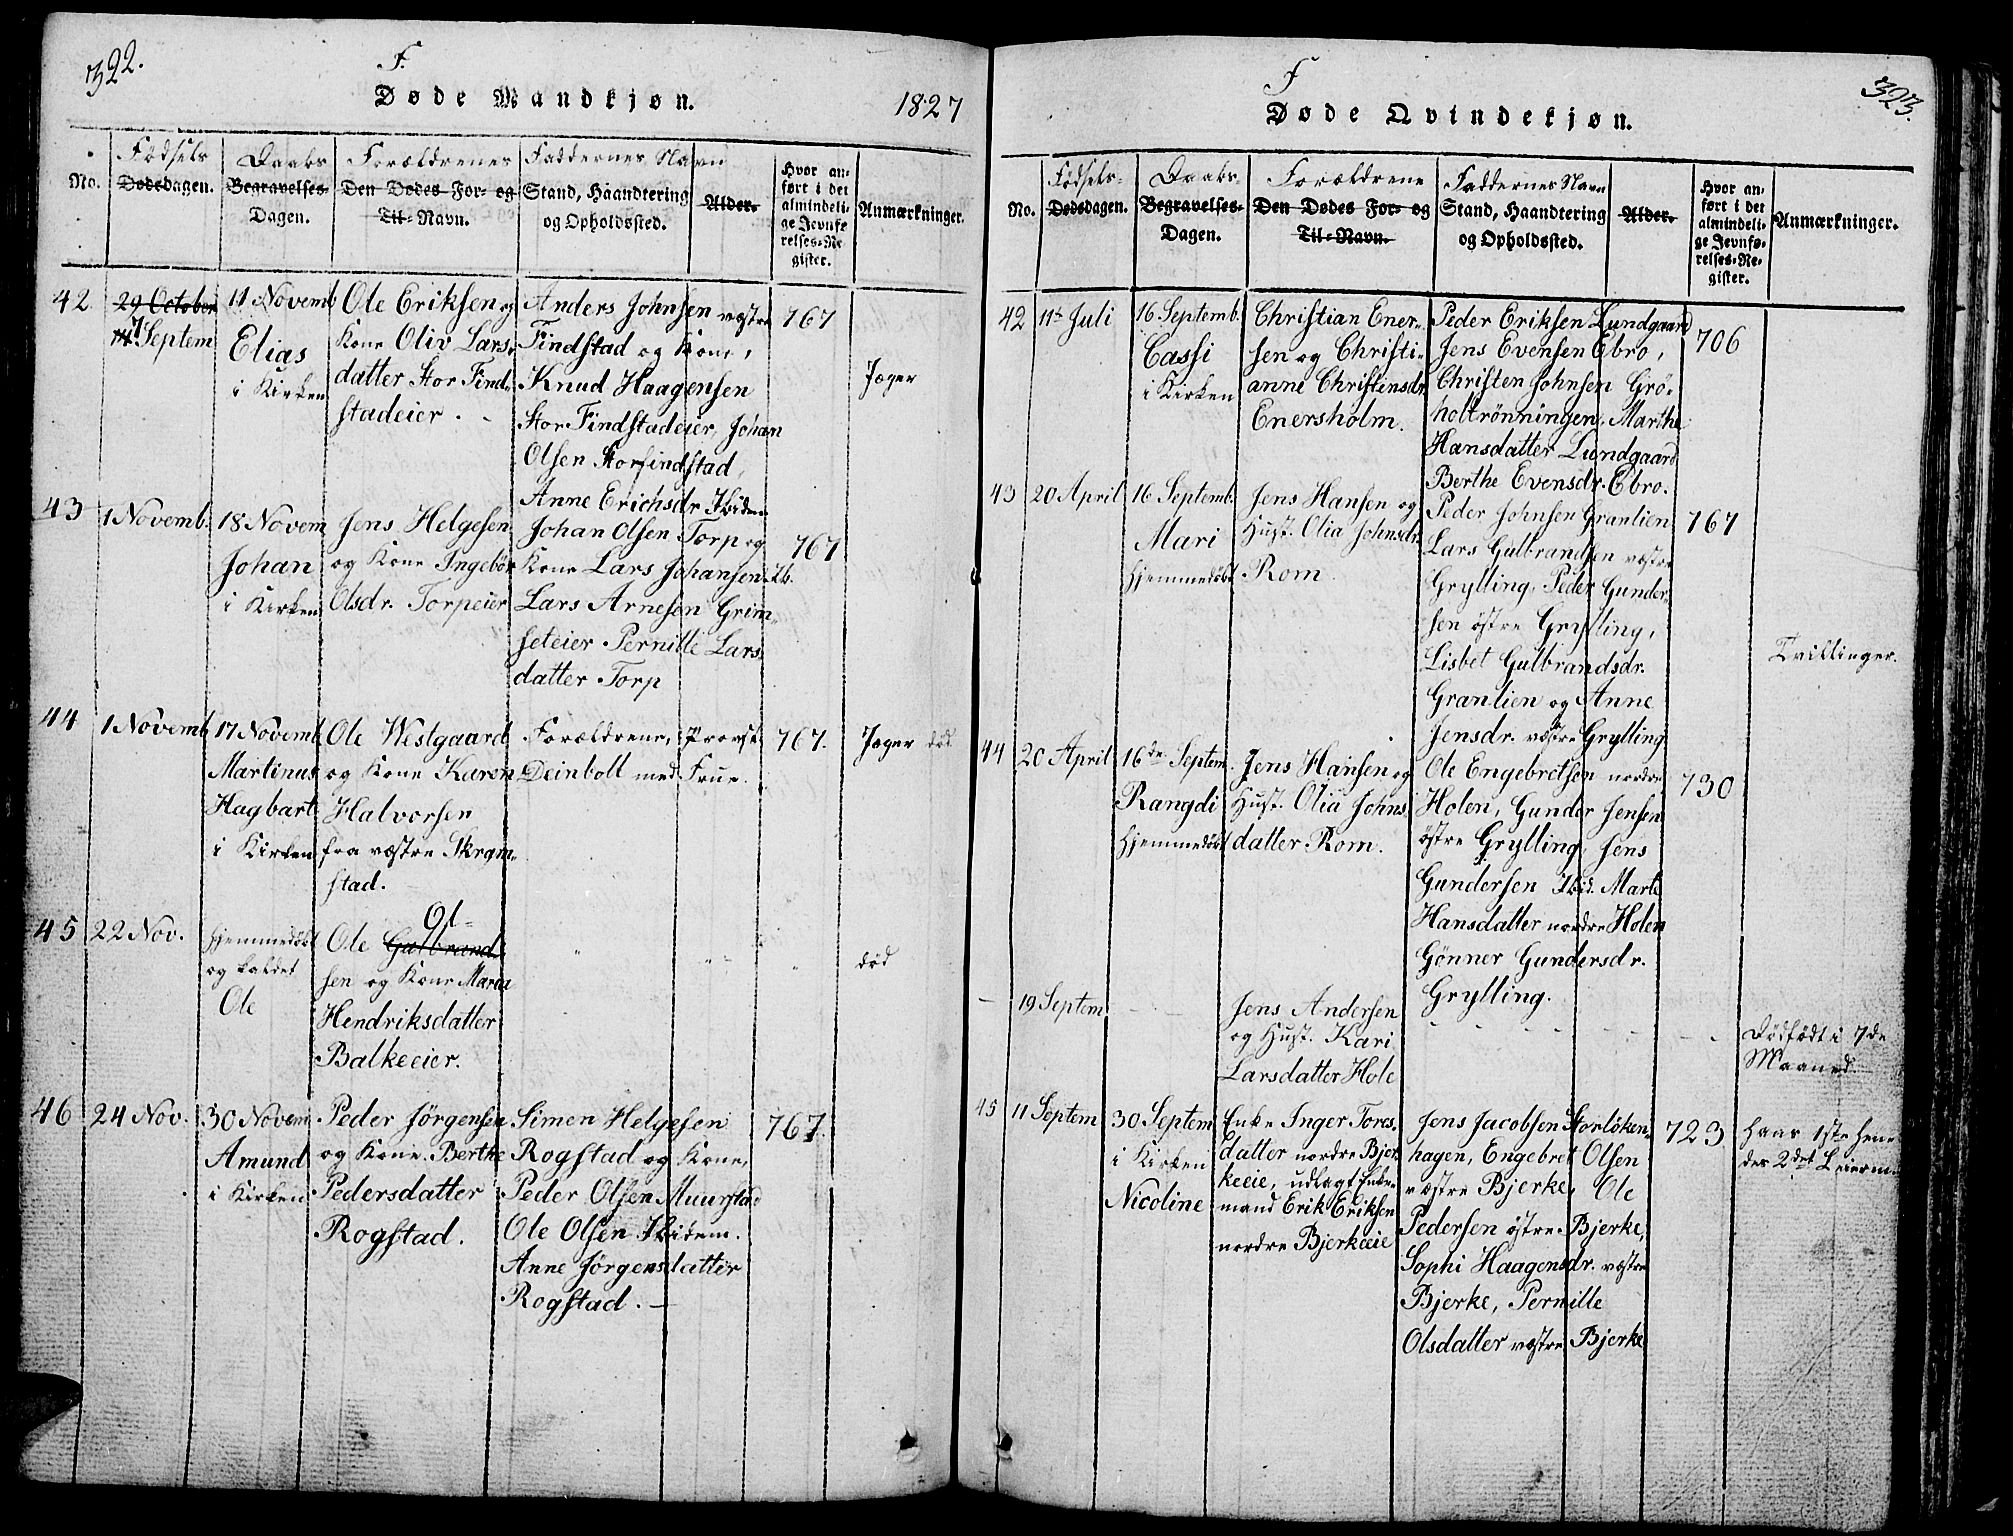 322.
F.
Døde Mandkjøn.
1827
No.
Fødsels
Dødsdagen.
Daabs
Begravelses-
Dagen.
Forældrenes
Den Dødes For- og
Til-Navn.
Faddernes Navn
Stand, Haandtering
og Opholdssted.
Alder.
Hvor an-
ført i det
almindeli-
ge Jevnfø-
relses-Re-
gister.
Anmærkninger.
42
29 October
7 Septem
11 Novemb
Elias
i Kirken
Ole Eriksen og
Kone Oliv Lars-
datter Stor Find-
stadeier.
Anders Johnsen vestre
Findstad og Kone,
Knud Haagensen
Stor Findstadeier, Johan
Olsen Storfindstad,
Anne Erichsdr Ibidem
767
Jæger
43
1 Novemb.
18 Novem
Johan
i Kirken
Jens Helgesen
og Kone Ingebør
Olsdr. Torpeier
Johan Olsen Torp og
Kone Lars Johansen ib.
Lars Arnesen Grim-
seteier Pernille Lars-
datter Torp
767
44
1 Novemb
17 Novemb
Martinus
Hagbart
i Kirken
Ole Westgaard
og Kone Karen
Halvorsen
fra vestre Skram-
stad.
Forældrene, Provst
Deinboll med Frue.
767.
Jæger død
45
22 Nov.
hjemmedøbt
og kaldet
Ole
Ol-
Ole Gulbrand-
sen og Kone Maria
Hendriksdatter
Balkeeier.
død
46
24 Nov.
30 Novem
Amund
i Kirken
Peder Jørgensen
og Kone Berthe
Pedersdatter
Rogstad.
Simen Helgesen
Rogstad og Kone,
Peder Olsen Muurstad
Ole Olsen Ibidem.
Anne Jørgensdatter
Rogstad.
767.
323.
F
Døde Qvindekjøn.
No.
Fødsels-
Dødsdagen.
Daabs-
Begravelses-
Dagen.
Forældrene
Den Dødes For- og
Til-Navn.
Faddernes Navn
Stand, Haandtering
og Opholdssted.
Alder.
Hvor an-
ført i det
almindeli-
ge Jevnfø-
relses-Re-
gister.
Anmærkninger.
42
11te Juli
16 Septemb.
Cassi
i Kirken
Christian Ener-
sen og Christi-
anne Christensdr
Enersholm.
Peder Eriksen Lundgaard
Jens Evensen Ebro,
Christen Johnsen Grö-
holtrönningen, Marthe
Hansdatter Lundgaard
Berthe Evensdr. Ebro.
706
43
20 April
16 Septemb.
Mari
hjemmedøbt
Jens Hansen og
Hust. Olia Johnsdr.
Rom.
Peder Johnsen Granlien
Lars Gulbrandsen vestre
Grylling, Peder Gunder-
sen östre Grylling,
Lisbet Gulbrandsdr.
Granlien og Anne
Jensdr. vestre Grylling
767
Tvillinger.
44
20 April
16de Septem.
Rangdi
hjemmedøbt
Jens Hansen og
Hust. Olia Johns-
datter Rom.
Ole Engebretsen nordre
Holen, Gunder Jensen
östre Grylling, Jens
Gundersen Ibid. Marte
Hansdatter nordre Holen
Gönner Gundersdr.
Grylling.
730
19 Septem
Jens Andersen
og Hust. Kari
Larsdatter Hole
Dødfødt i 7de
Maaned
45
11 Septem
30 Septem
i Kirken
Nicoline
Enke Inger Tores-
datter nordre Bjer-
keeie, udlagt Enke-
mand Erik Eriksen
nordre Bjerkeeie
Jens Jacobsen Storlöken-
hagen, Engebret Olsen
vestre Bjerke, Ole
Pedersen östre Bjerke,
Sophi Haagensdr. vestre
Bjerke, Pernille
Olsdatter vestre Bjerke
723
hans 1ste hen-
des 2det Leierm